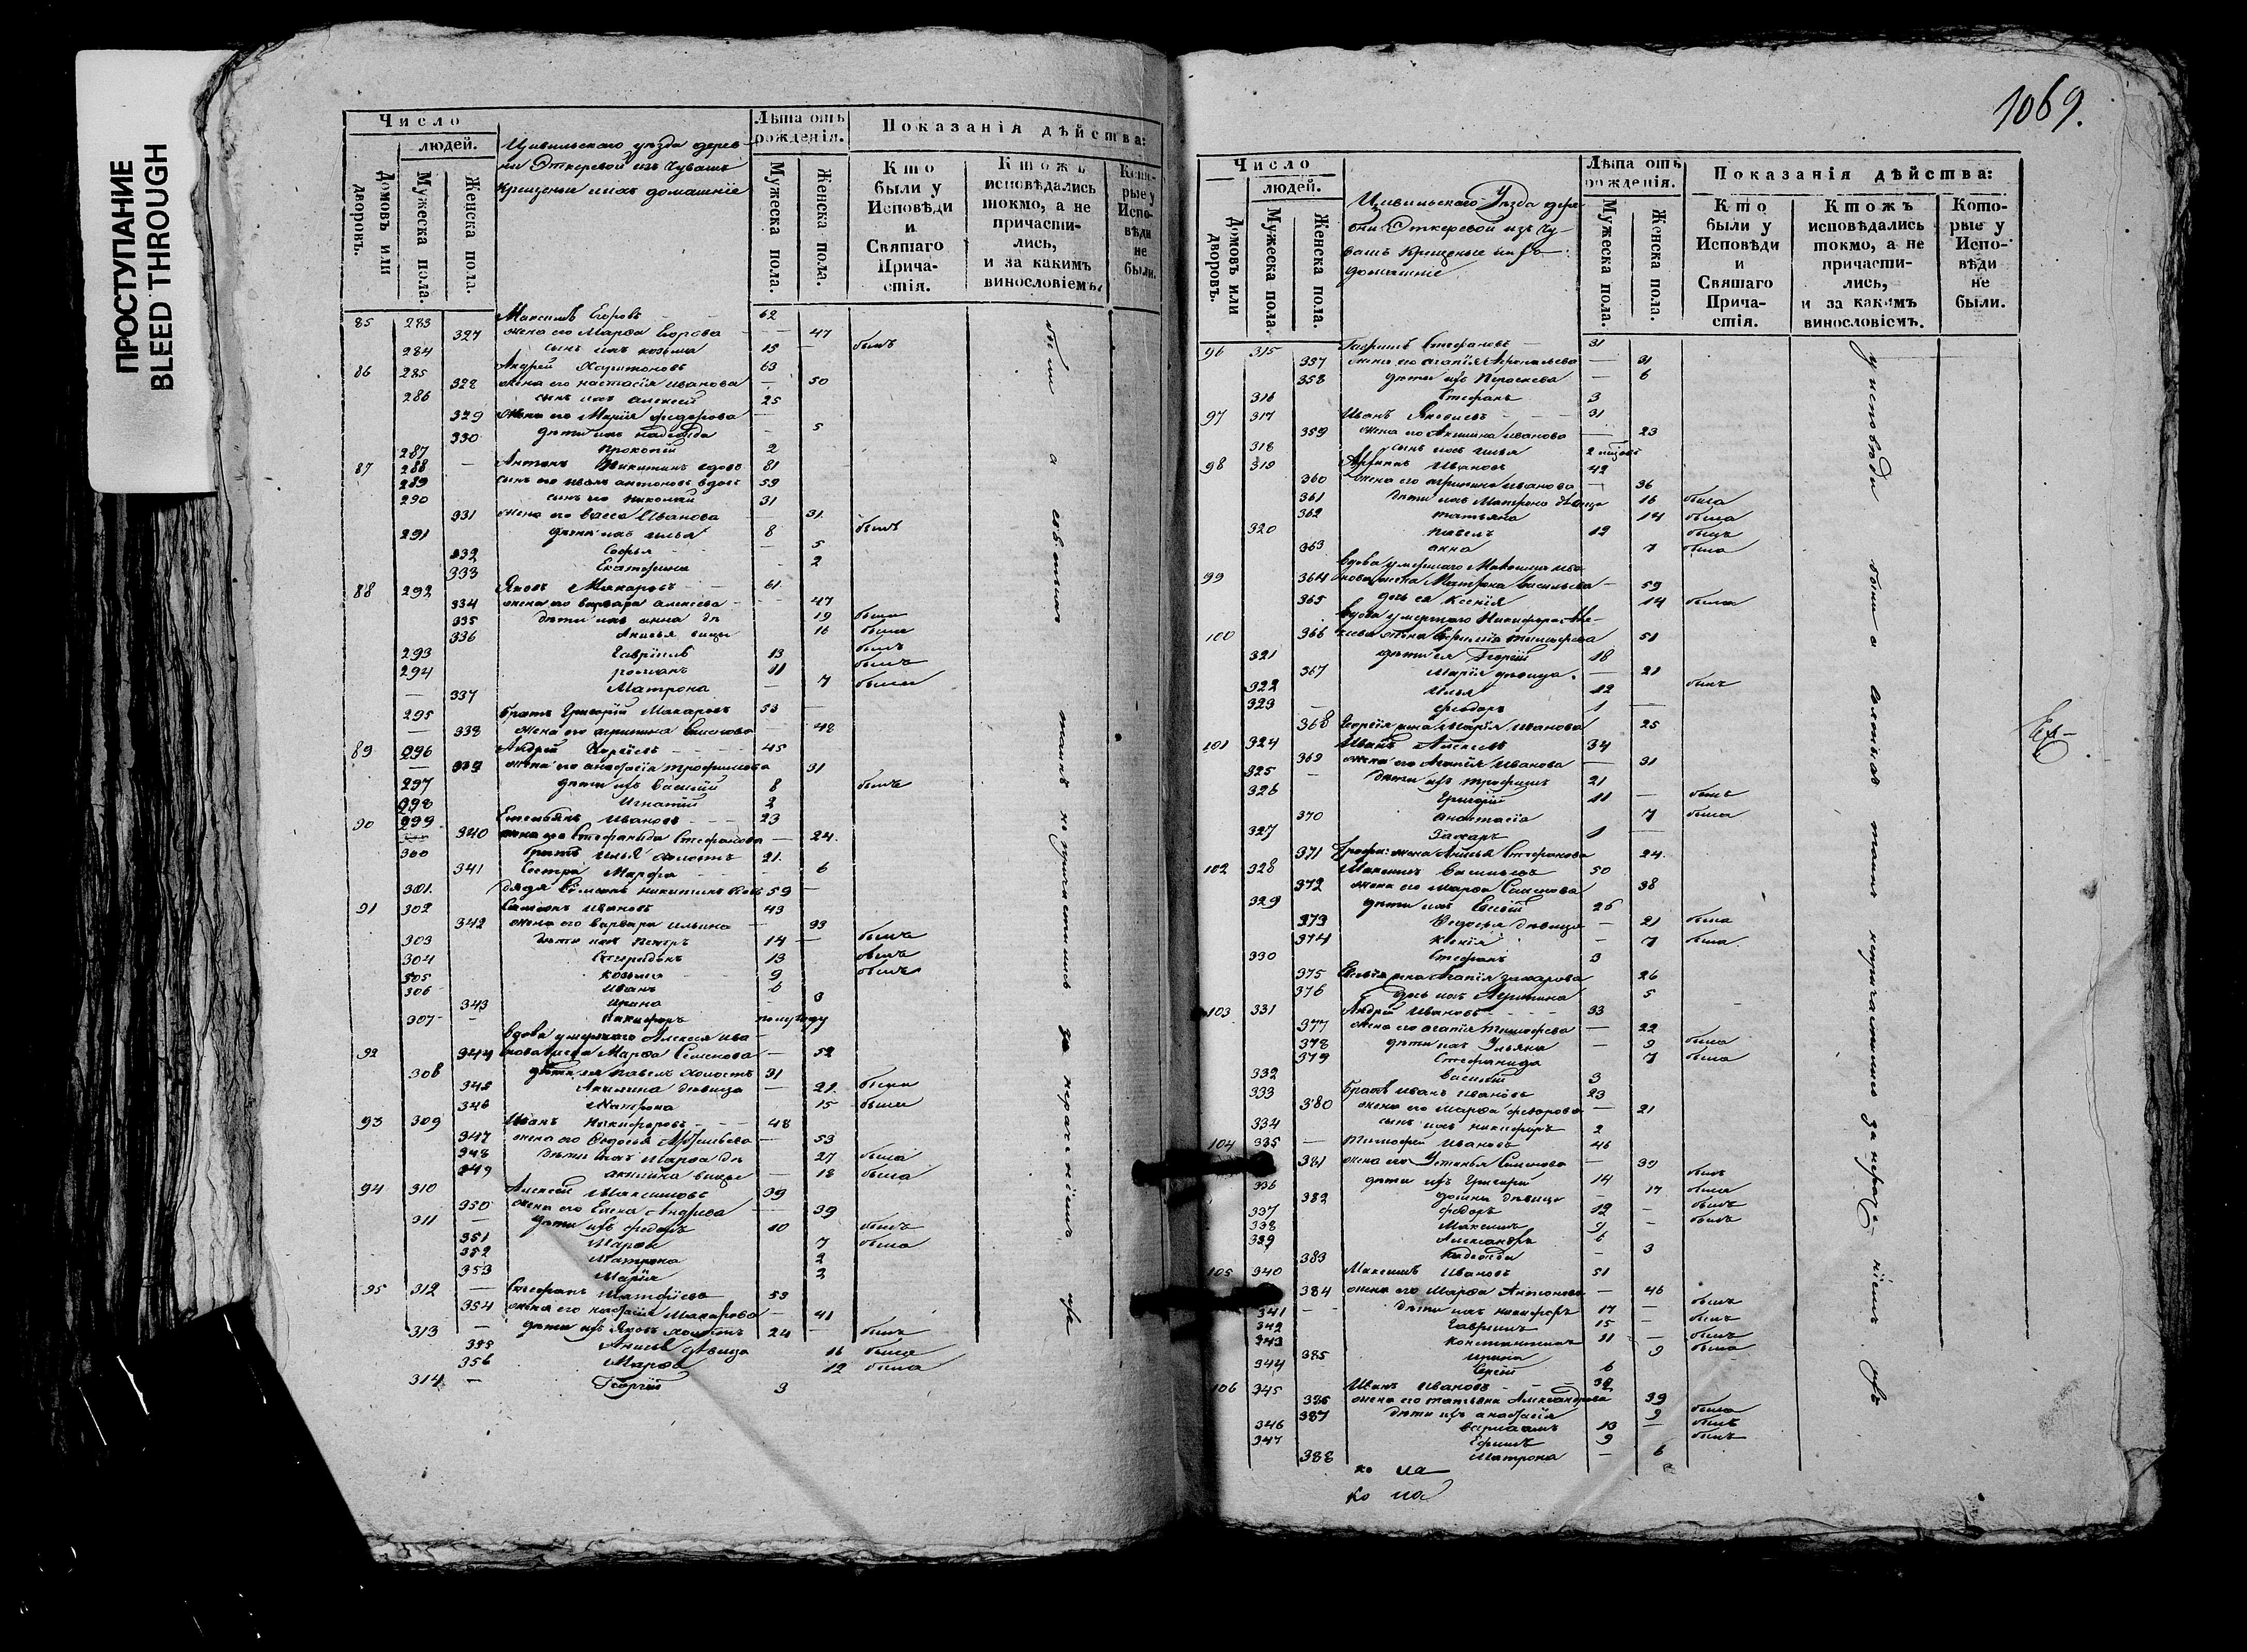 ПРОСТУПАНИЕ
BLEED THROUGH
1069.
Число
людей.
Домовъ или дворовъ.
Мужеска пола.
Женска пола.
Цивильскаго уезда дерев-
ни Эткеревой изъ Чувашъ
крещеные и ихъ домашніе
Лѣта отъ рожденія.
Мужеска пола.
Женска пола.
Показанія дѣйства:
Кто были у Исповѣди и Святаго Причастія.
Ктожъ исповѣдались токмо, а не причастились, и за какимъ винословіемъ.
Которые у Исповѣди не были.
85 283 Максимъ Егоровъ 62
327 жена его Марѳа Егорова 47
284 сынъ ихъ козьма 15 былъ
86 285 Андрей Харитоновъ 63
328 жена его настасія иванова 50
286 сынъ ихъ алексей 25
329 жена его Марія федорова
330 дети ихъ надежда 5
287 прокопій 2
87 288 Антонъ Никитинъ вдовъ 81
289 сынъ его иванъ антоновъ вдовъ 59
290 сынъ его николай 31
331 жена его васса Иванова 31
291 дети ихъ илья 8 былъ
332 Софья 5
333 Екатерина 2
88 292 Яковъ Макаровъ 61
334 жена его варвара алексеева 47
335 дети ихъ анна де 19 была
336 Анисья вицы 16 была
293 Гавріилъ 13 былъ
294 романъ 11 былъ
337 Матрона 7 была
295 братъ Григорій Макаровъ 53
338 жена его агрипина 48
89 296 Андрей 45
339 жена его анастасія трофимова 31
297 дети ихъ Василій 8 былъ
298 Игнатій 2
90 299 Емельянъ Ивановъ 23
340 жена его Стефанида Стефанова 24
300 братъ илья холостъ 21
341 Сестра Марфа 6
301 дядя никитинъ 59
91 302 ивановъ 43
342 жена его варвара ильина 33
303 дети ихъ петръ 14 былъ
304 Спиридонъ 13 былъ
305 козьма 9 былъ
306 иванъ 6
343 ирина 3
307 никифоръ полугоду
вдова умершаго Алексея ива-
92 344 нова жена Марѳа Семенова 52
308 дети ея павелъ холостъ 31
345 Акилина девица 21 была
346 Матрона 15 была
93 309 Иванъ Никифоровъ 48
347 жена его Ѳедосья 53
348 дети ихъ Марѳа де 27 была
349 акилина вицы 18 была
94 310 Алексей Максимовъ 39
350 жена его Елена Андреева 39
311 дети ихъ федоръ 10 былъ
351 Марѳа 7 была
352 Матрона 2
353 Марія 2
95 312 Стефанъ 53
354 жена его настасія Макарова 41
313 дети ихъ Яковъ холостъ 24 былъ
355 Анисья девица 16 была
356 Марѳа 12 была
314 Георгій 3
Число
людей.
Домовъ или дворовъ.
Мужеска пола.
Женска пола.
Цивильскаго Уезда дере-
вни Эткеревой изъ Чу-
вашъ крещеные и ихъ
домашніе
Лѣта отъ рожденія.
Мужеска пола.
Женска пола.
Показанія дѣйства:
Кто были у Исповѣди и Святаго Причастія.
Ктожъ исповѣдались токмо, а не причастились, и за какимъ винословіемъ.
Которые у Исповѣди не были.
96 315 Гавріилъ Стефановъ 31
357 жена его 31
358 дети ихъ Параскева 6
316 Стефанъ 3
97 317 Иванъ Яковлевъ 31
359 жена его Акилина иванова 23
318 сынъ ихъ илья 2
98 319 Ивановъ 42
360 жена его агрипина иванова 36
361 дети ихъ Матрона девица 16 была
362 татьяна 14 была
320 павелъ 12 былъ
363 анна 7 была
вдова умершаго Максима ива-
99 364 нова жена Матрона Васильева 59
365 дочь ея Ксенія 14 была
вдова умершаго Никифора
100 366 жена тимофеева 51
321 дети ея Георгій 18
367 Марія девица 21
322 илья 12 былъ
323 феодоръ 1
368 Георгія жена Марія Иванова 25
101 324 Иванъ Алексеевъ 34
369 жена его Агапія Иванова 31
325 дети ихъ трофимъ 21
326 Григорій 11 былъ
370 Анастасія 7 была
327 Захаръ 1
371 Трофи: жена Анисья Стефанова 24
102 328 Максимъ Васильевъ 50
372 жена его Марѳа Симонова 38
329 дети ихъ 26
373 Ѳедосья девица 21 была
374 Ксенія 7 была
330 Стефанъ 3
375 жена Агапія Захарова 26
376 дочь ихъ Агрипина 5
103 331 Андрей Ивановъ 33
377 жена его агапія Тимофеева 22
378 дети ихъ Ульяна 9 была
379 Стефанида 7 была
332 Василій 3
333 братъ иванъ ивановъ 23
380 жена его марѳа федорова 21
334 сынъ ихъ никифоръ 2
104 335 Тимофей Ивановъ 46
381 жена его Устинья Симонова 39
336 дети ихъ Григорій 14 былъ
382 домна девица 17 была
337 федоръ 12 былъ
338 Максимъ 9 былъ
339 Александръ 6
383 надежда 3
105 340 Максимъ Ивановъ 51
384 жена его Марѳа Антонова 46
341 дети ихъ никифоръ 17 былъ
342 Гавріилъ 15 былъ
343 Константинъ 11 былъ
385 ирина 9 была
344 Сергей 6
106 345 Иванъ Ивановъ 39
386 жена его татьяна Александрова 39
387 дети ихъ анастасія 9 была
346 варлаамъ 13 былъ
347 Ефимъ 9 былъ
388 Матрона 6